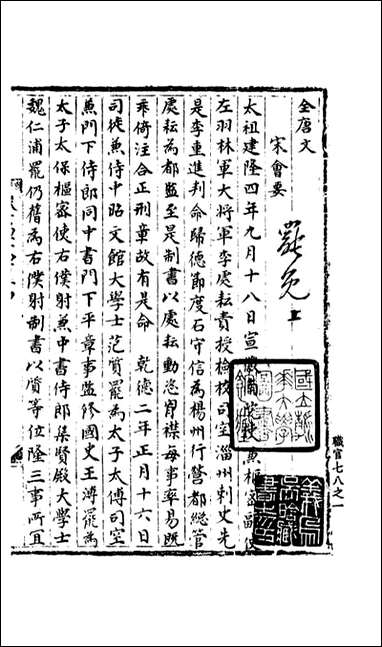 全唐文
宋會要
罷免上
太祖建隆四年九月十八日宣徽南院使兼樞密副使
左羽林軍大將軍李處耘責授檢校司空淄州刺史先
是李重進判命歸德節度石守信為楊州行營都總管
處耘為都監至是制書以處耘動恣胷襟每事率易既
乖倚注合正刑章故有是命 乾德二年正月十六日
司徒兼侍中昭文館大學士范質罷為太子太傅司空
兼門下侍郎同中書門下平章事監修國史王溥罷為
太子太保樞密使右僕射兼中書侍郎集賢殿大學士
魏仁浦罷仍舊為右僕射制書以質等位隆三事所宜
職官七八之一